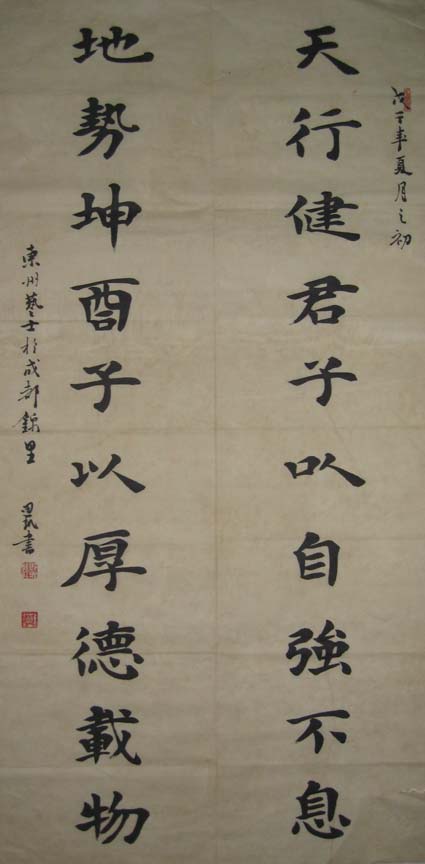 戊子年夏月之初
天行健君子以自強不息
地勢坤君子以厚德載物
東州藝士於成都錦里 書